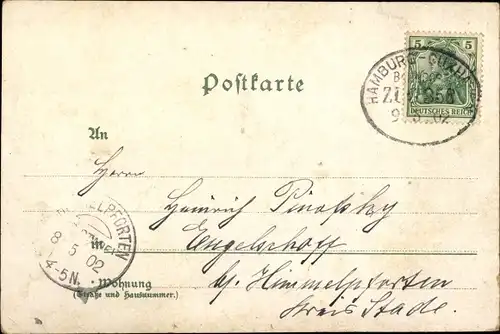 5 5
DEUTSCHES REICH
HAMBURG-CUXH
ZUG
9 5 02
Postkarte
An
Herrn
Heinrich Pinofsky
in
Engelschoff
bf. Himmelpforten
Kreis Stade.
Wohnung
(Straße und Hausnummer.)
ELPFORTEN
8 5 02
4-5N.